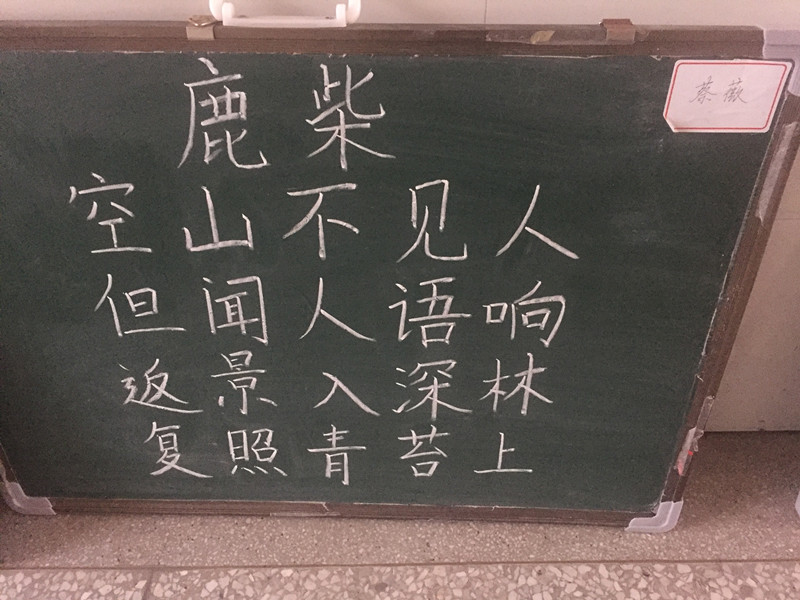 鹿柴
蔡薇
空山不见人
但闻人语响
返景入深林
复照青苔上